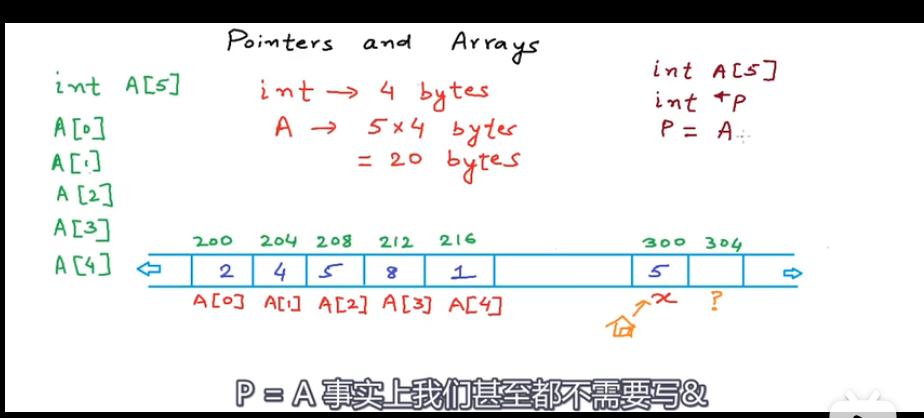 Pointers and Arrays
int A[5]
A[0]
A[1]
A[2]
A[3]
A[4]
int → 4 bytes
A → 5×4 bytes
= 20 bytes
int A[5]
int *P
P = A
200 204 208 212 216 300 304
2 4 5 8 1 5
A[0] A[1] A[2] A[3] A[4] x ?
P = A 事实上我们甚至都不需要写&